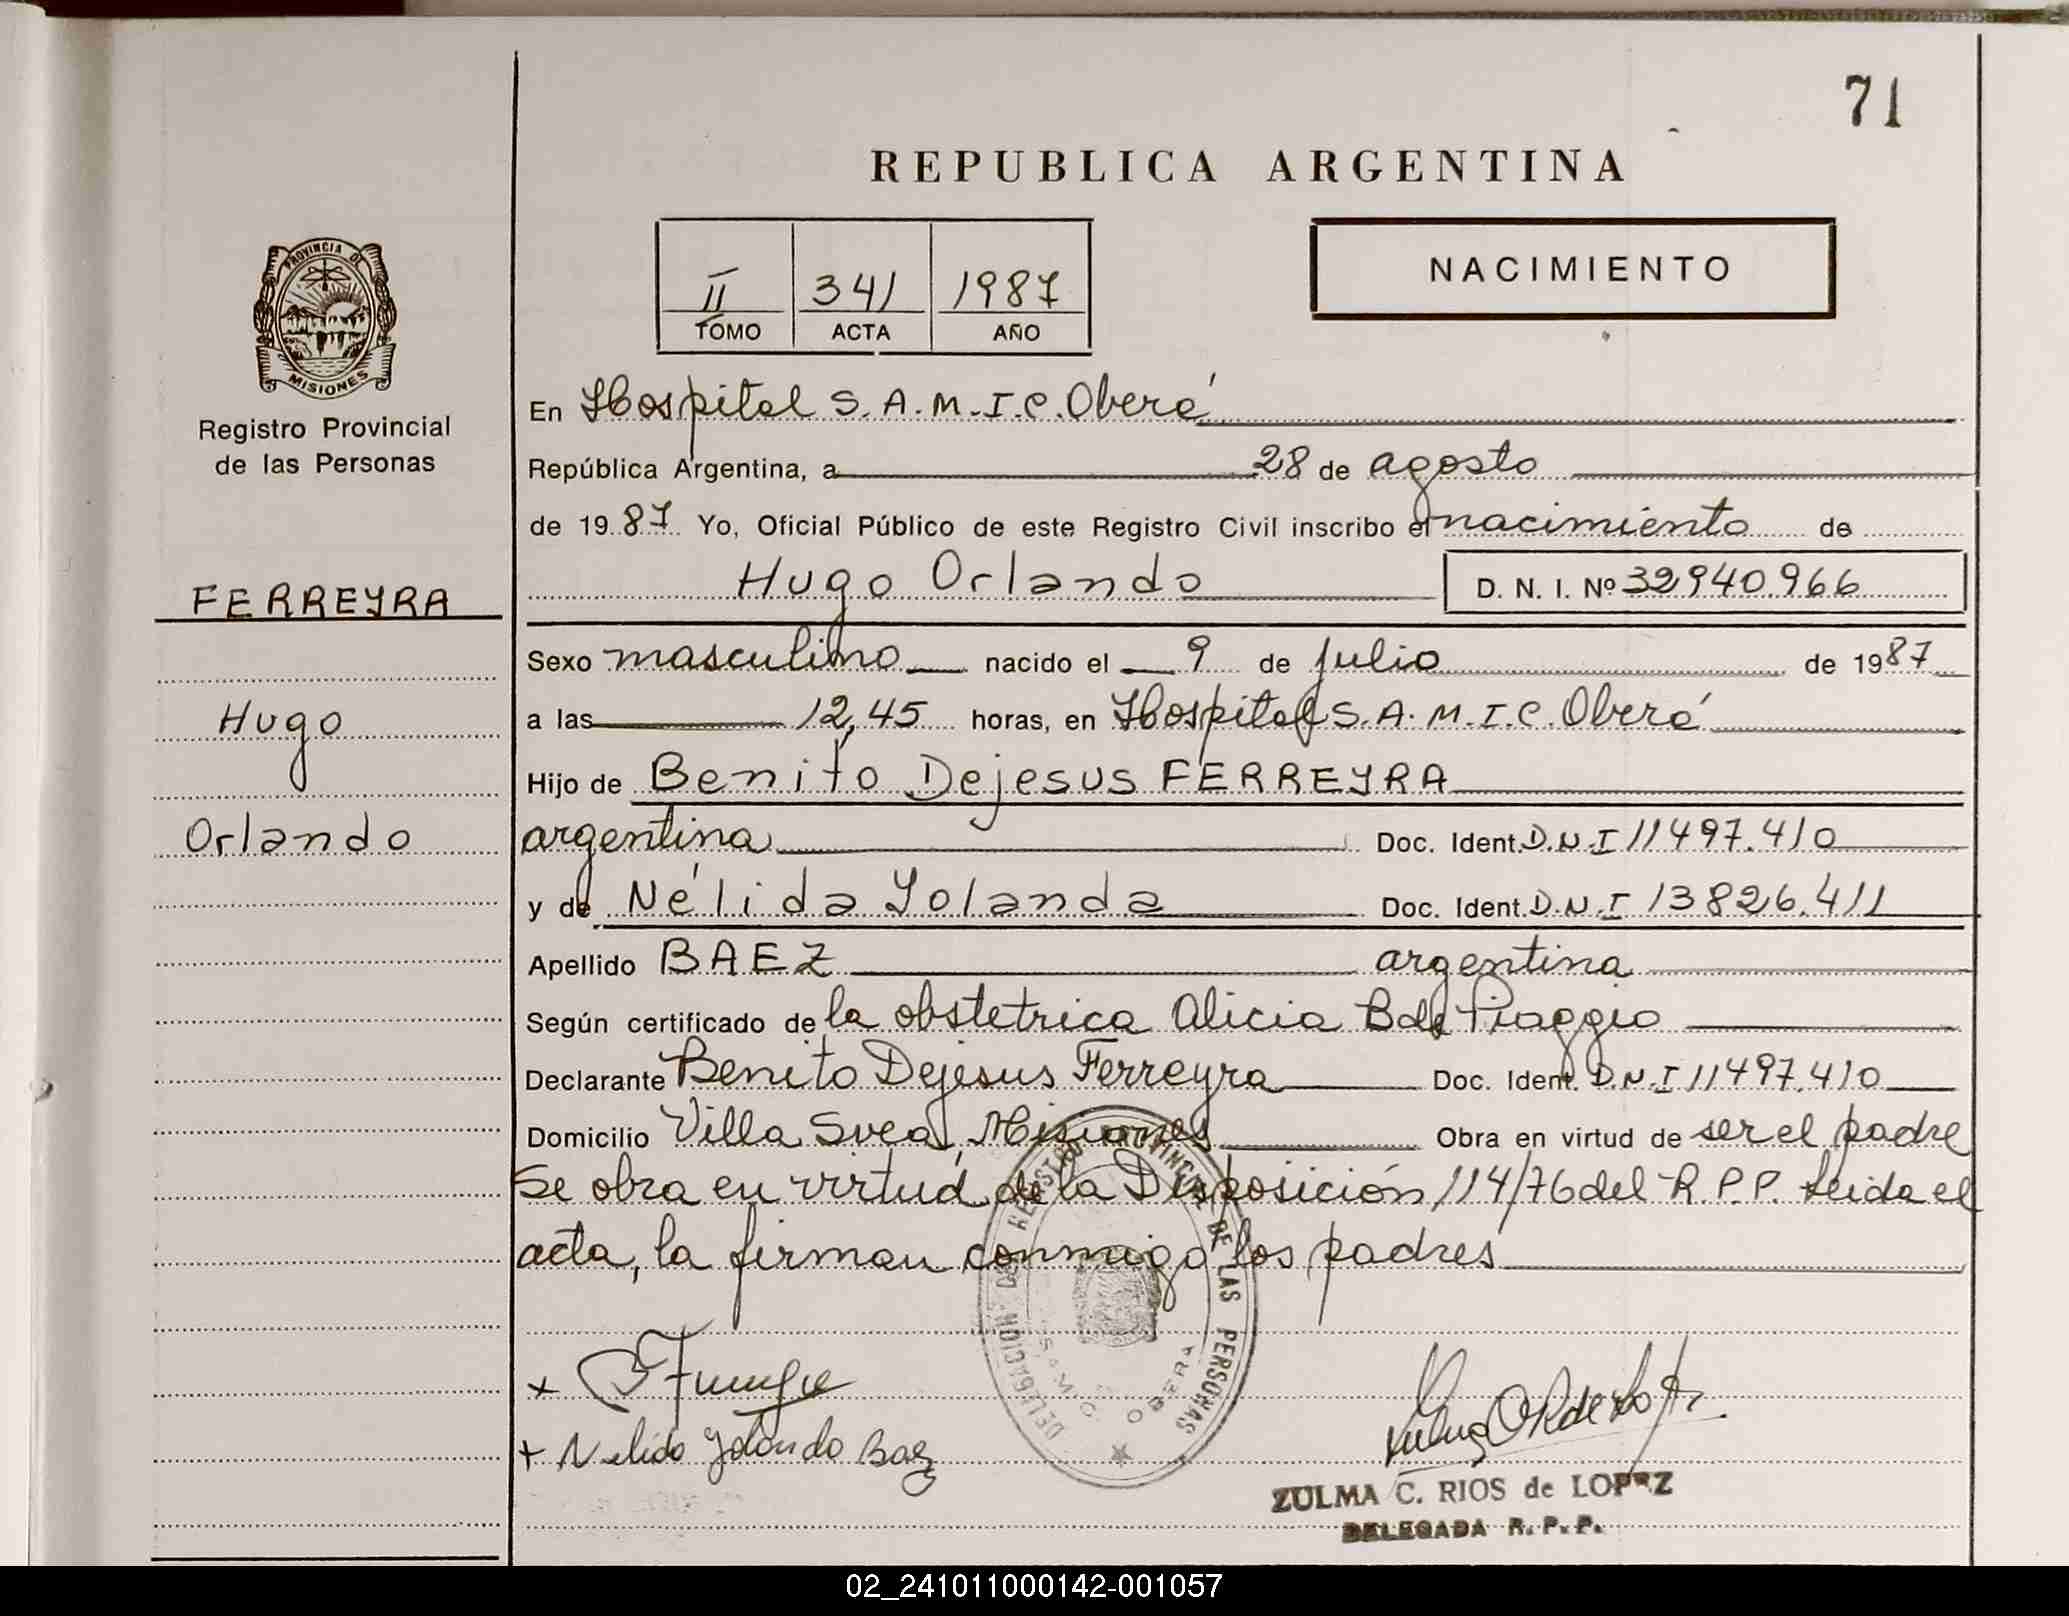 71
REPUBLICA ARGENTINA
II 341 1987
TOMO ACTA AÑO
NACIMIENTO
PROVINCIA DE
MISIONES
Registro Provincial
de las Personas
FERREYRA
Hugo
Orlando
En Hospital S.A.M.I.C. Oberá
República Argentina, a 28 de agosto
de 1987 Yo, Oficial Público de este Registro Civil inscribo el nacimiento de
Hugo Orlando D. N. I. Nº 32940.966
Sexo masculino nacido el 9 de julio de 1987
a las 12,45 horas, en Hospital S.A.M.I.C. Oberá
Hijo de Benito Dejesus FERREYRA
argentina Doc. Ident. D.N.I 11497.410
y de Nélida Yolanda Doc. Ident. D.N.I 13826.411
Apellido BAEZ argentina
Según certificado de la obstetrica Alicia B de Piaggio
Declarante Benito Dejesus Ferreyra Doc. Ident. D.N.I 11497.410
Domicilio Villa Svea, Misiones Obra en virtud de ser el padre
Se obra en virtud de la Disposición 114/76 del R.P.P. Leida el
acta, la firman conmigo los padres
DELEGACION DEL REGISTRO PROVINCIAL DE LAS PERSONAS
S.A.M.I.C. OBERA
+ Nelida Yolanda Baez
ZULMA C. RIOS de LOPEZ
DELEGADA R. P. P.
02_241011000142-001057